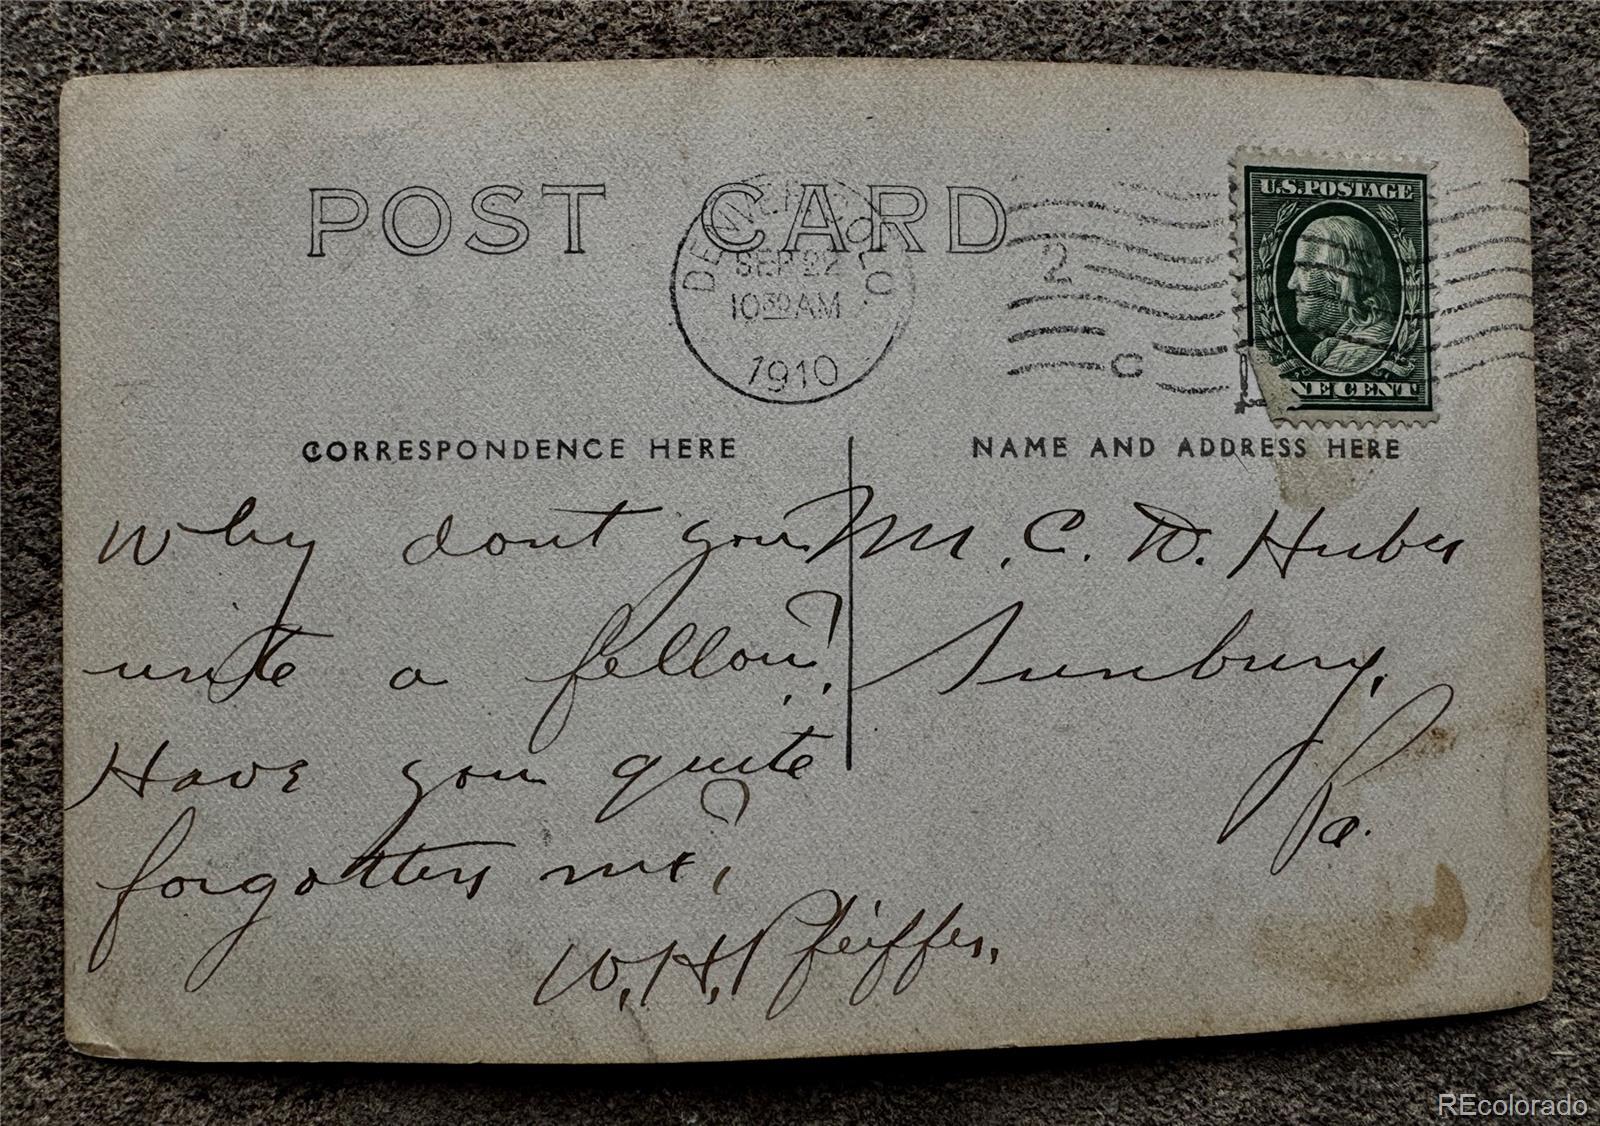 POST CARD
DENVER, COLO.
SEP 22
10 30 AM
1910
2
C
U.S. POSTAGE
NE CENT
CORRESPONDENCE HERE
NAME AND ADDRESS HERE
Why dont you
write a fellow?
Have you quite
forgotten me?
W. H. Pfeiffer.
M. C. D. Huber
Sunbury,
Pa.
REcolorado